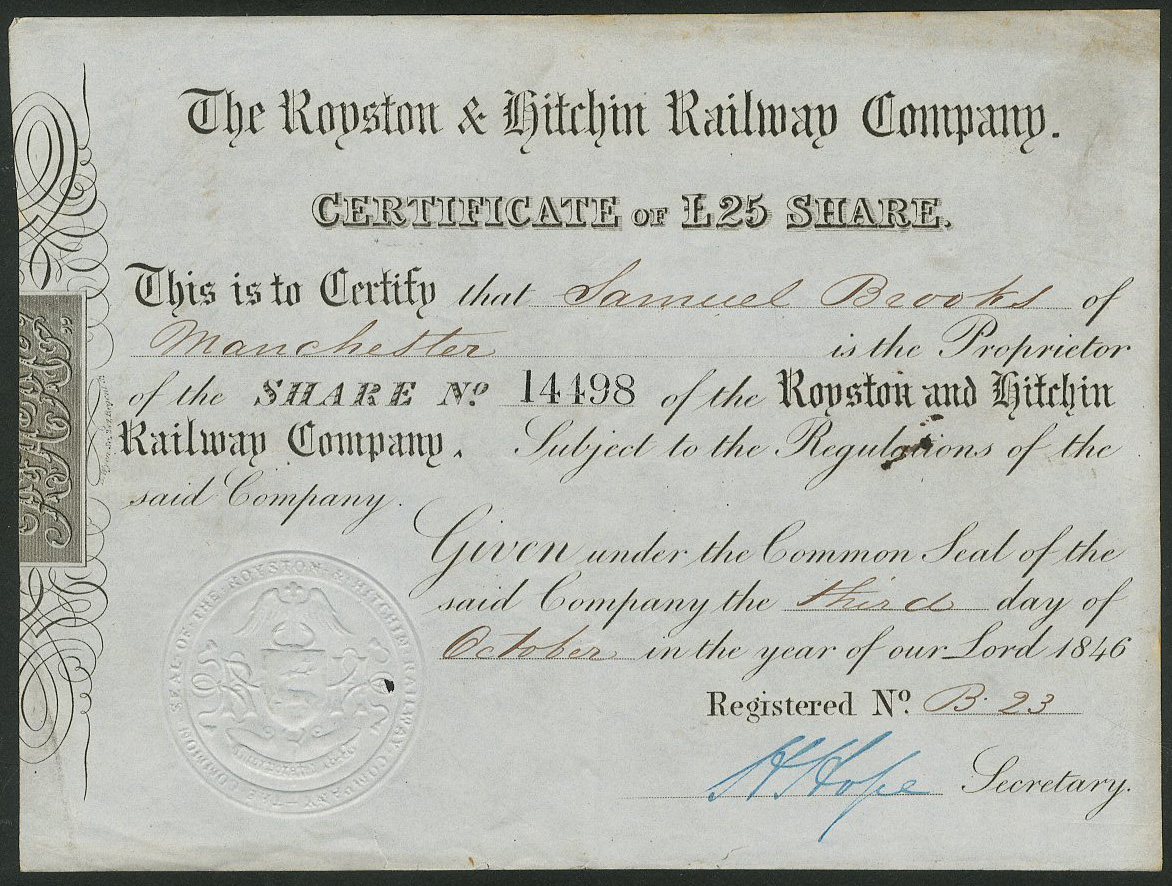 The Royston & Hitchin Railway Company.
CERTIFICATE OF £25 SHARE.
This is to Certify that Samuel Brooks of
Manchester is the Proprietor
of the SHARE No. 14498 of the Royston and Hitchin
Railway Company. Subject to the Regulations of the
said Company.
Given under the Common Seal of the
said Company the third day of
October in the year of our Lord 1846
Registered No. B. 23
H Hope Secretary.
SEAL OF THE ROYSTON & HITCHIN RAILWAY COMPANY